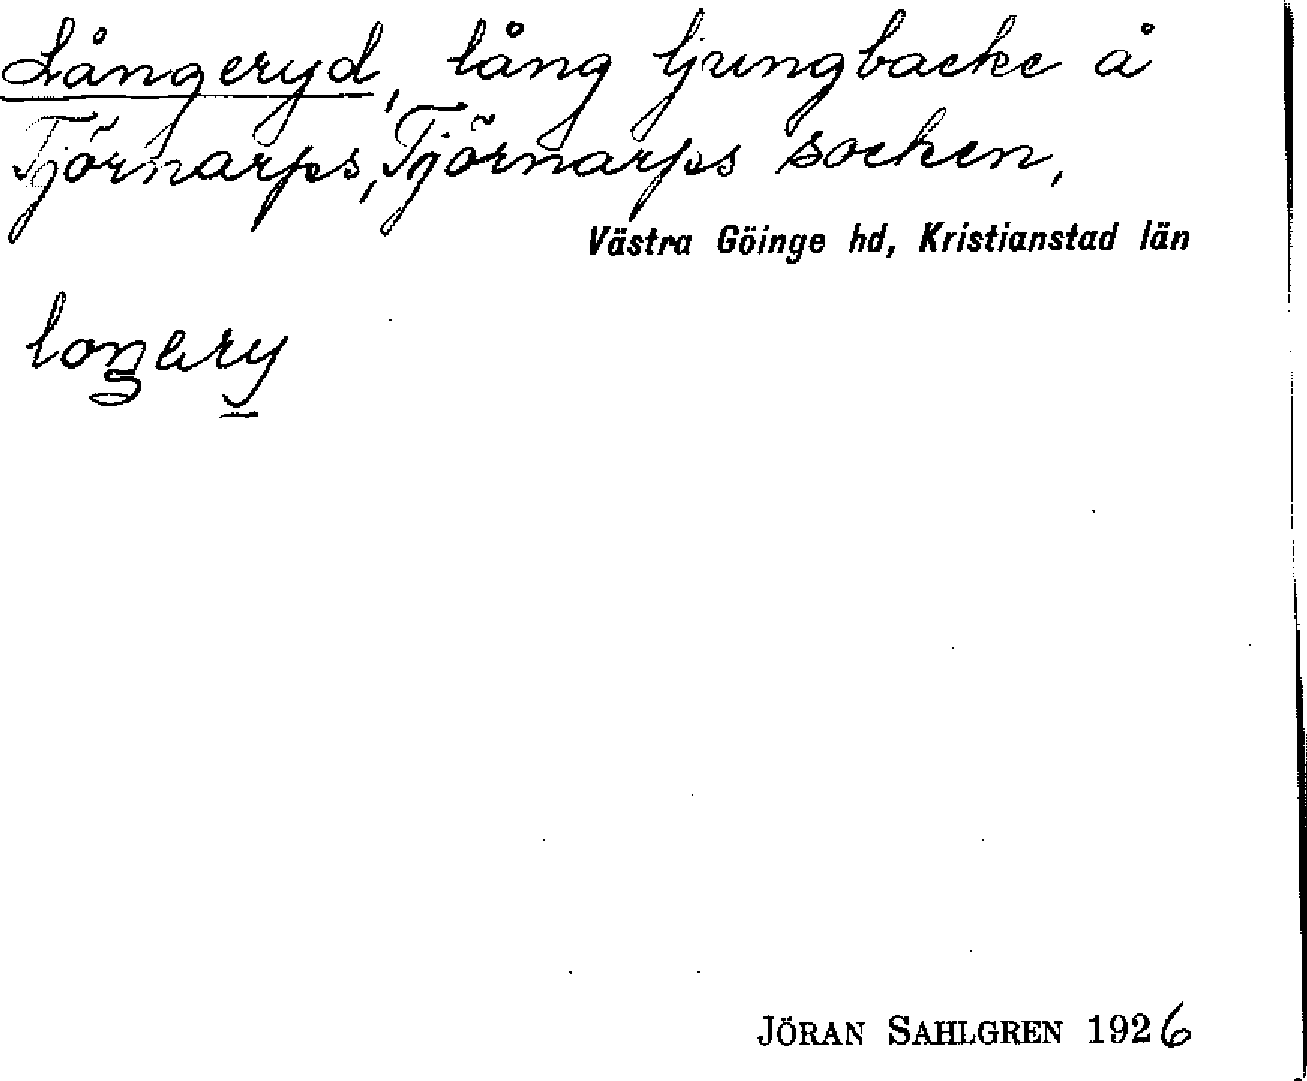 Långeryd, lång ljungbacke å
Tjörnarps, Tjörnarps socken,
Västra Göinge hd, Kristianstad län
JÖRAN SAHLGREN 1926